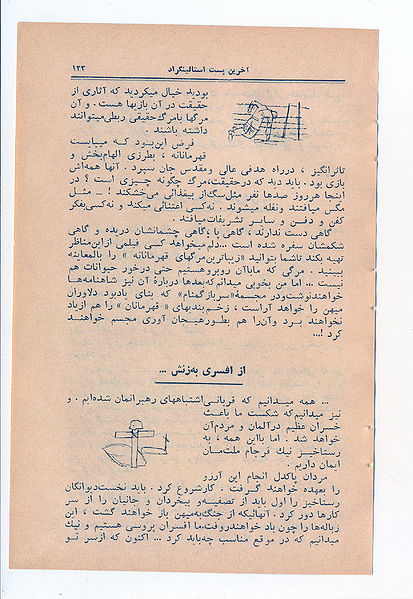 آخرین پست استالینگراد ۱۲۳
بودید خیال میکردید که آثاری از
حقیقت در آن بازیها هست. و آن
مرگها بامرگ حقیقی ربطی میتوانند
داشته باشند.
فرض این‌بود که میبایست
قهرمانانه ، بطرزی الهام‌بخش و
تاثرانگیز ، درراه هدفی عالی ومقدس جان سپرد . آنها همه‌اش
بازی بود . باید دید که درحقیقت،مرگ چگونه چیزی است ؟ در
اینجا هرروز صدها نفر مثل‌سگ‌از بیغذائی می‌خشکند !.. مثل
مگس میافتند ونفله میشوند . نه‌کسی اعتنائی میکند و نه‌کسی‌بفکر
کفن و دفن و سایر تشریفات‌میافتد .
گاهی دست ندارند ، گاهی پا ،گاهی چشمانشان دریده و گاهی
شکمشان سفره شده است ...دلم‌میخواهد کسی فیلمی ازاین‌مناظر
تهیه بکند تاشما بتوانید «زیباترین‌مرگهای قهرمانانه » را بالمعاینه
ببینید . مرگی که ماباآن روبروهستیم حتی درخور حیوانات هم
نیست ... اما من بخوبی میدانم‌که‌بعدها دربارهٔ آن نیز شاهنامه‌ها
خواهندنوشت‌ودر مجسمهٔ«سربازگمنام» که بنای یادبود دلاوران
میهن را خواهد آراست ، زخم‌بندیهای « قهرمانان » را هم ازیاد
نخواهند برد وآن‌را هم بطورهیجان آوری مجسم خواهند
کرد !...
از افسری به‌زنش ...
... همه میدانیم که قربانی‌اشتباههای رهبرانمان شده‌ایم . و
نیز میدانیم‌که شکست ما باعث
خسران عظیم درآلمان و مردم‌آن
خواهد شد . اما بااین همه ، به
رستاخیز نیک فرجام ملت‌مان
ایمان داریم .
مردان پاکدل انجام این آرزو
را بعهده خواهند گرفت . کارشروع کرد . باید نخست‌دیوانگان
رستاخیز را اول باید از تصفیه‌و بیخردان و جانیان را از سر
کارها دور کرد . آنهائیکه از جنگ‌به‌میهن باز خواهند گشت ، این
زباله‌ها را چون باد خواهندروفت.ما افسران پروسی هستیم و نیک
میدانیم که در موقع مناسب چه‌باید کرد ... اکنون که ازسر نو